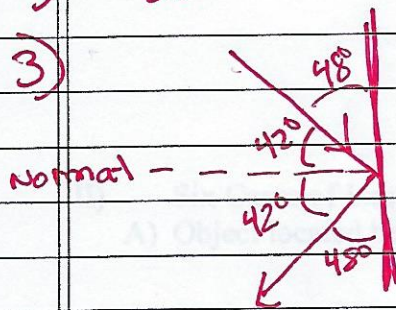 3)
48°
42°
Normal
42°
48°
A) Object